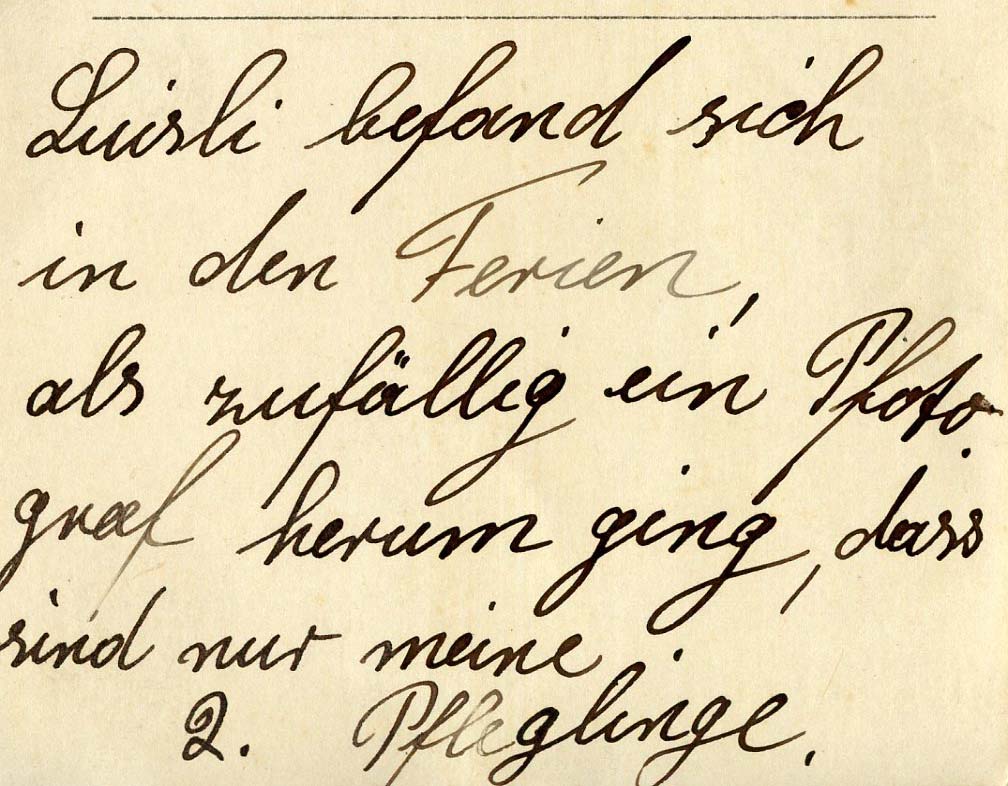 Luisli befand sich
in den Ferien,
als zufällig ein Pfoto
graf herum ging, dass
sind nur meine
2. Pfleglinge.